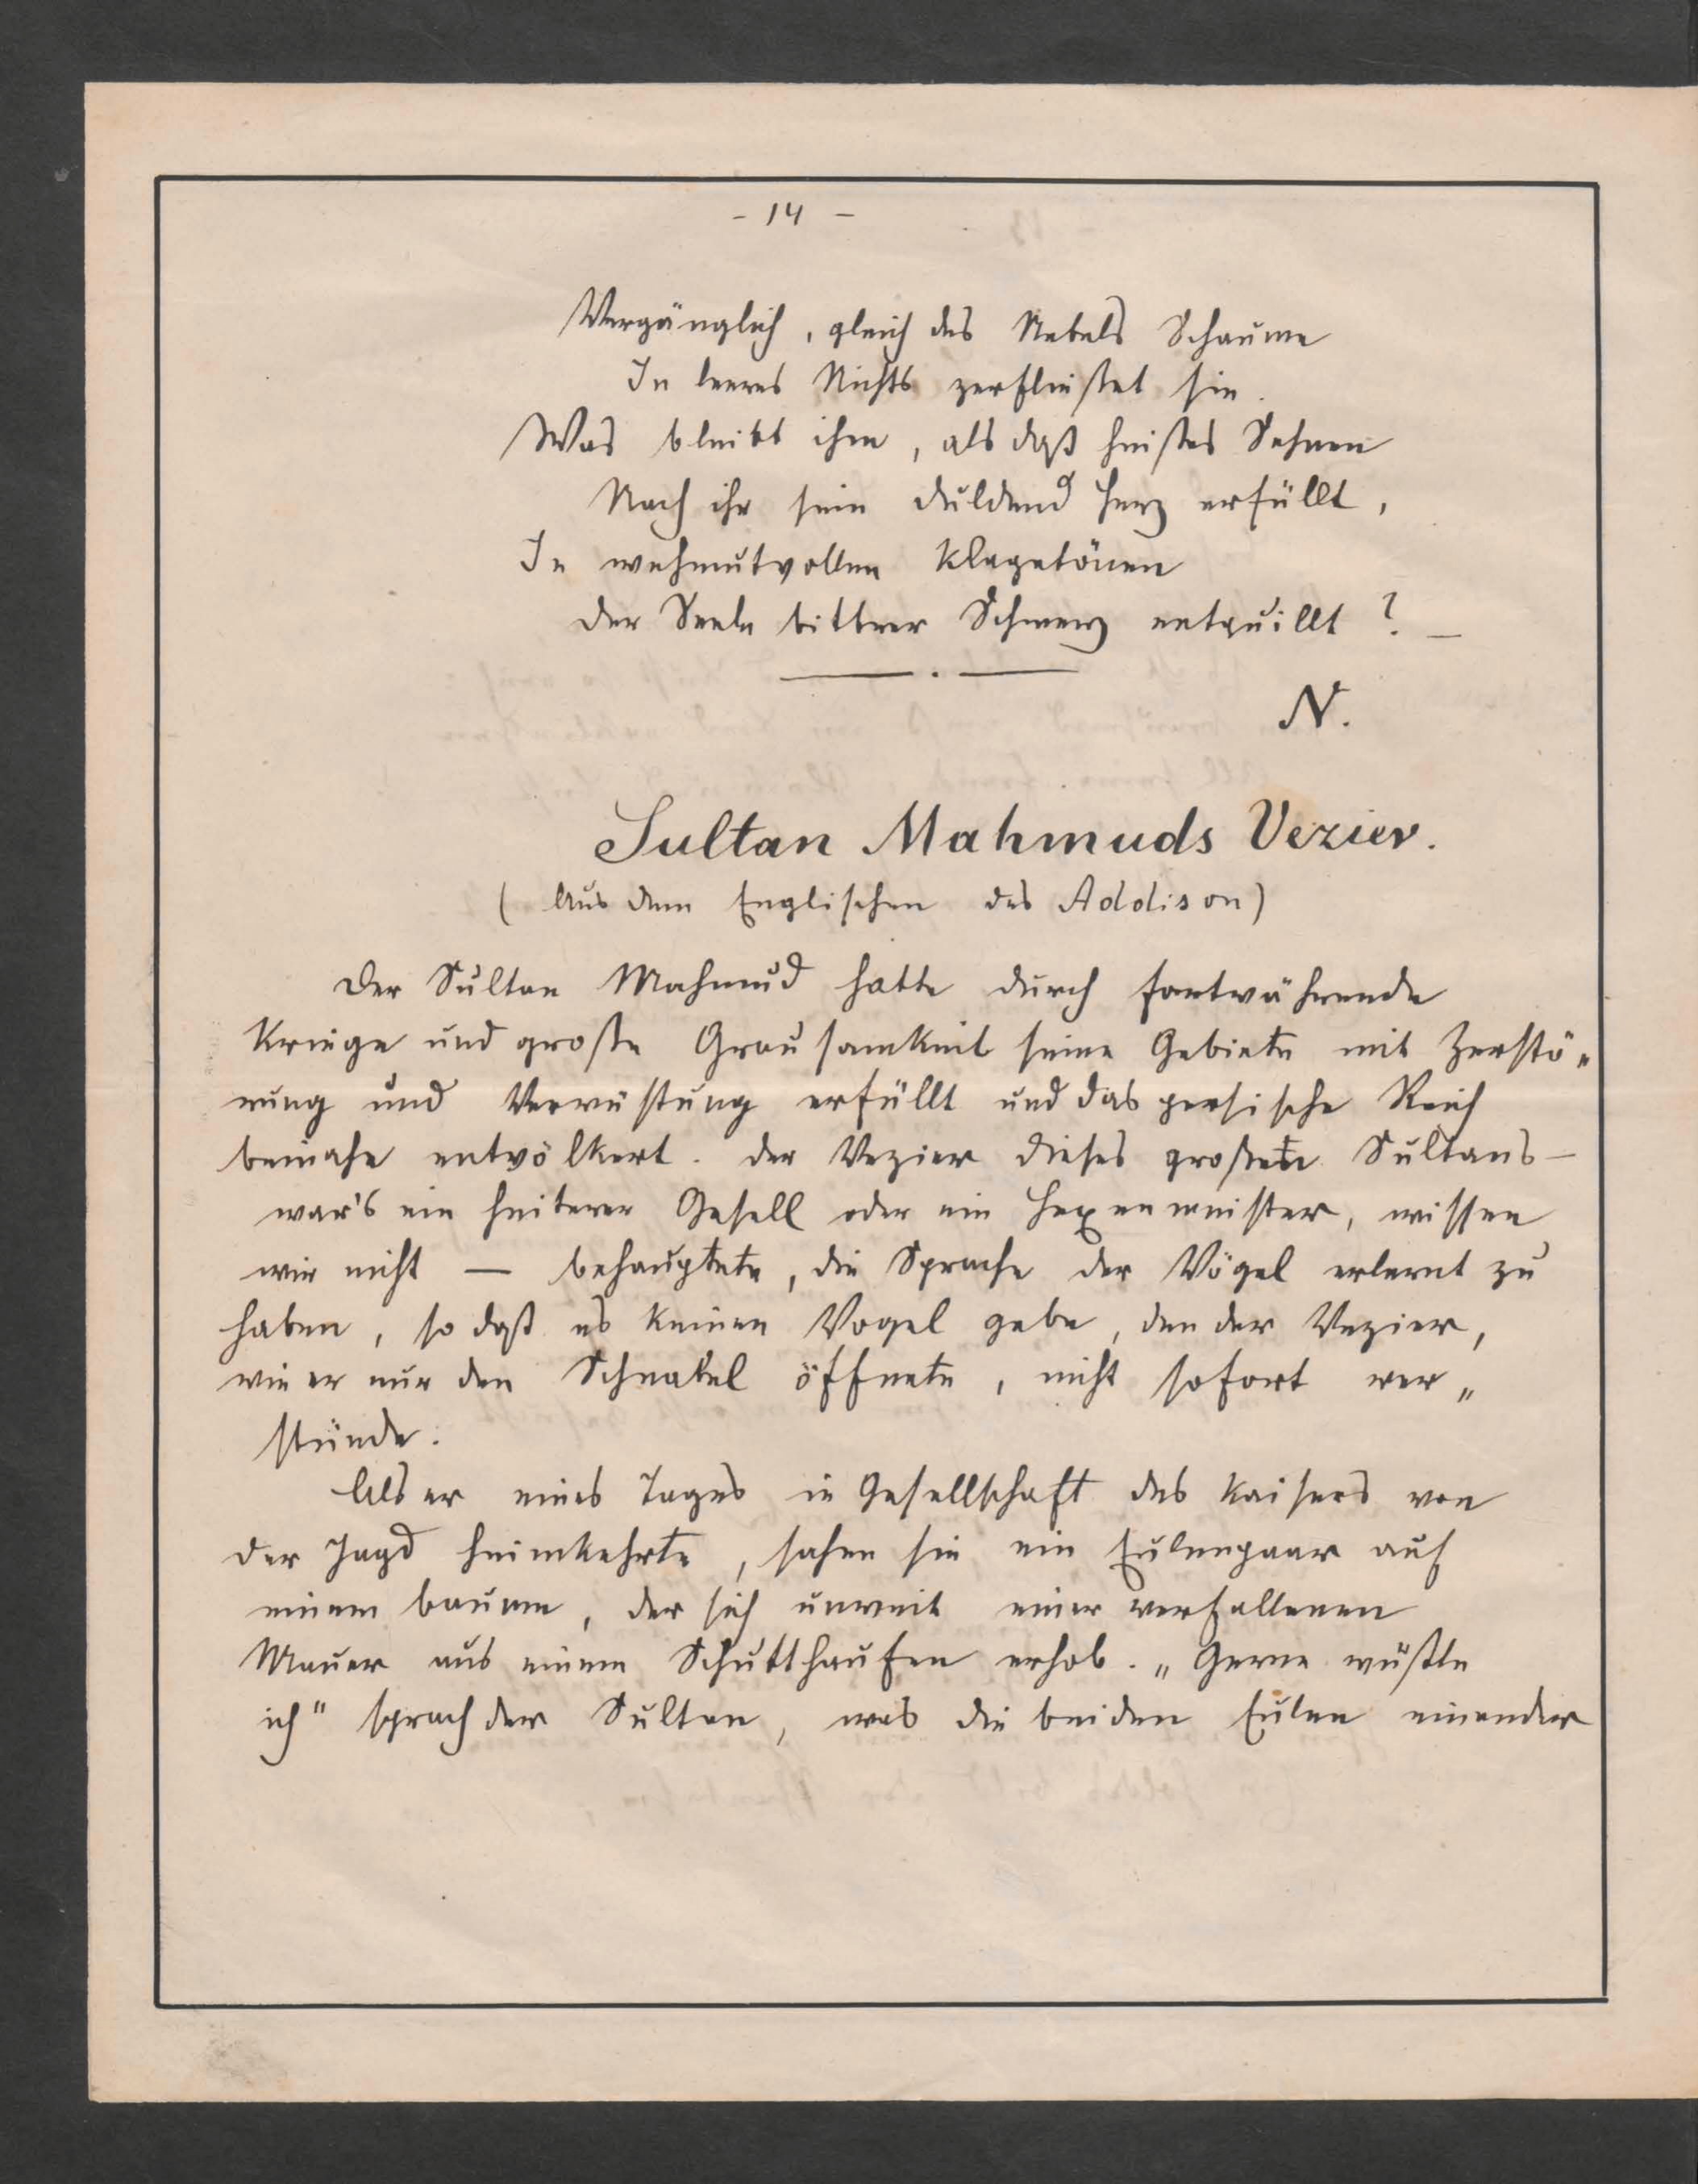 - 14 -
Vergänglich, gleich des Nebels Schaume
In leeres Nichts zerfließet sie.
Was bleibt ihm, als daß heißes Sehnen
Nach ihr sein duldend Herz erfüllt,
In wehmutvollen Klagetönen
Der Seele bittrer Schmerz entquillt? –
N.
Sultan Mahmuds Vezier.
(Aus dem Englischen des Addison)
Der Sultan Mahmud hatte durch fortwährende
Kriege und große Grausamkeit seine Gebiete mit Zerstö„
rung und Verwüstung erfüllt und das persische Reich
beinahe entvölkert. Der Vezier dieses Sultans –
war's ein heiterer Gesell oder ein Hexenmeister, wissen
wir nicht — behauptete, die Sprache der Vögel erlernt zu
haben, so daß es keinen Vogel gebe, den der Vezier,
wie er nur den Schnabel öffnete, nicht sofort ver„
stünde.
Als er eines Tages in Gesellschaft des Kaisers von
der Jagd heimkehrte, sahen sie ein Eulenpaar auf
einem Baume, der sich unweit einer verfallenen
Mauer aus einem Schutthaufen erhob. „Gerne wüßte
ich" sprach der Sultan, was die beiden Eulen einander